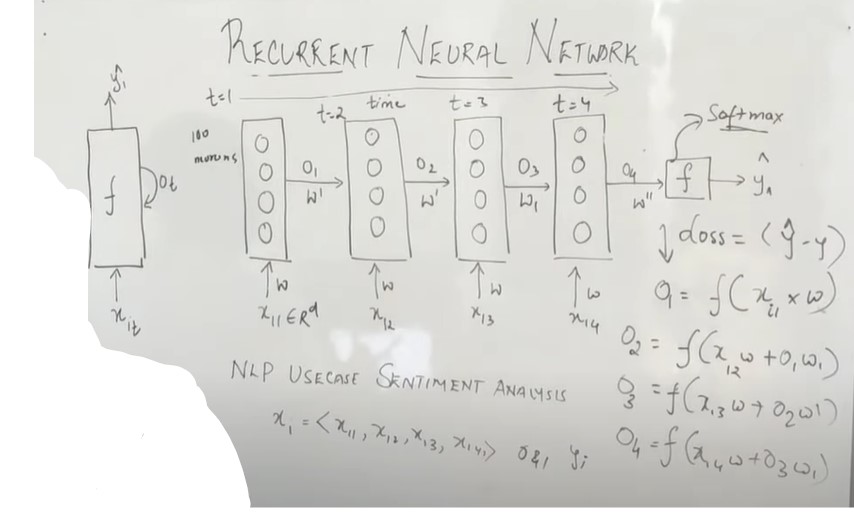 RECURRENT NEURAL NETWORK
t=1 t=2 time t=3 t=4
ŷ₁
f
Ot
x₁t
100
O₁
W'
O₂
W'
O₃
W₁
O₄
W''
f
Softmax
ŷ₁
W W W W
x₁₁ ∈ Rᵈ x₁₂ x₁₃ x₁₄
↓ Loss = (ŷ-y)
O₁ = f(xᵢ₁ × w)
O₂ = f(x₁₂w + O₁w₁)
O₃ = f(x₁₃w + O₂w')
O₄ = f(x₁₄w + O₃w₁)
NLP USECASE SENTIMENT ANALYSIS
x₁ = <x₁₁, x₁₂, x₁₃, x₁₄> 0&1 yᵢ